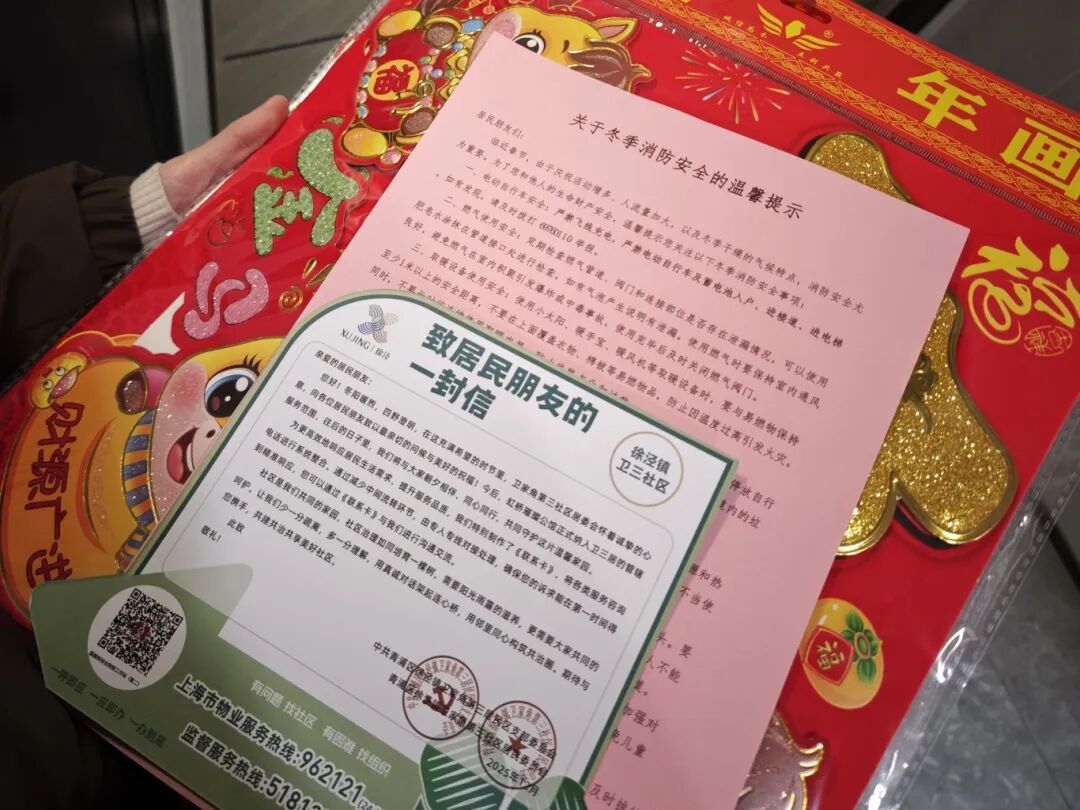 年画
福
福
财源广进
关于冬季消防安全的温馨提示
居民朋友们:
临近春节,由于庆祝活动增多、人流量加大,以及冬季干燥的气候特点,消防安全尤
为重要。为了您和他人的生命财产安全,温馨提示您关注以下冬季消防安全事项:
一、电动自行车安全:严禁飞线充电,严禁电动自行车及蓄电池入户、进楼道、进电梯
,如有发现,请及时拨打
举报。
二、燃气使用安全:定期检查燃气管道、阀门和连接部位是否存在泄漏情况,可以使用
肥皂水涂抹在管道接口处进行检查,如有气泡产生说明有泄漏。使用燃气时要保持室内通风
良好,避免燃气在室内积聚引发爆炸或中毒事执,使用完毕后及时关闭燃气阀门。
三、取暖设备使用安全:使用小太阳、暖手宝、暖风机等取暖设备时,要与易燃物保持
至少1米以上的安全距离,不要在上面覆盖衣物、棉被等易燃物品,防止因温度过高引发火灾。
同时,不要
停放自行
内的垃
和热
不当使
要
人不能
加强对
免儿童
及时拨
XUJING 徐泾
致居民朋友的
一封信
徐泾镇
卫三社区
亲爱的居民朋友:
您好!冬阳暖煦,四野澄明,在这充满希望的时节里,卫家角第三社区居委会怀着诚挚的心
意,向各位居民朋友致以最亲切的问候与美好的祝福!今后,虹桥璀璨公馆正式纳入卫三居的管辖
服务范围,往后的日子里,我们将与大家朝夕相伴、同心同行,共同守护这片温馨家园。
为更高效地响应居民生活需求、提升服务品质,我们特别制作了《联系卡》,将各类服务咨询
电话进行系统整合。通过减少中间流转环节,由专人专线对接处理,确保您的诉求能在第一时间得
到精准响应,您可以通过《联系卡》与我们进行沟通交流。
社区是我们共同的家园,社区治理如同培育一棵树,需要阳光雨露的滋养,更需要大家共同的
呵护。让我们少一分疏离,多一分理解,用真诚对话架起连心桥,用邻里同心构筑共治圈。期待与
您携手,共建共治共享美好社区。
此致
敬礼!
中共青浦区徐泾镇卫家角第三居民区支部委员会
青浦区徐泾镇卫家角第三社区居民委员会
2025年 月
有问题 找社区 有困难 找组织
一呼即应 一应即办 一办到底
上海市物业服务热线:962121
监督服务热线:5181